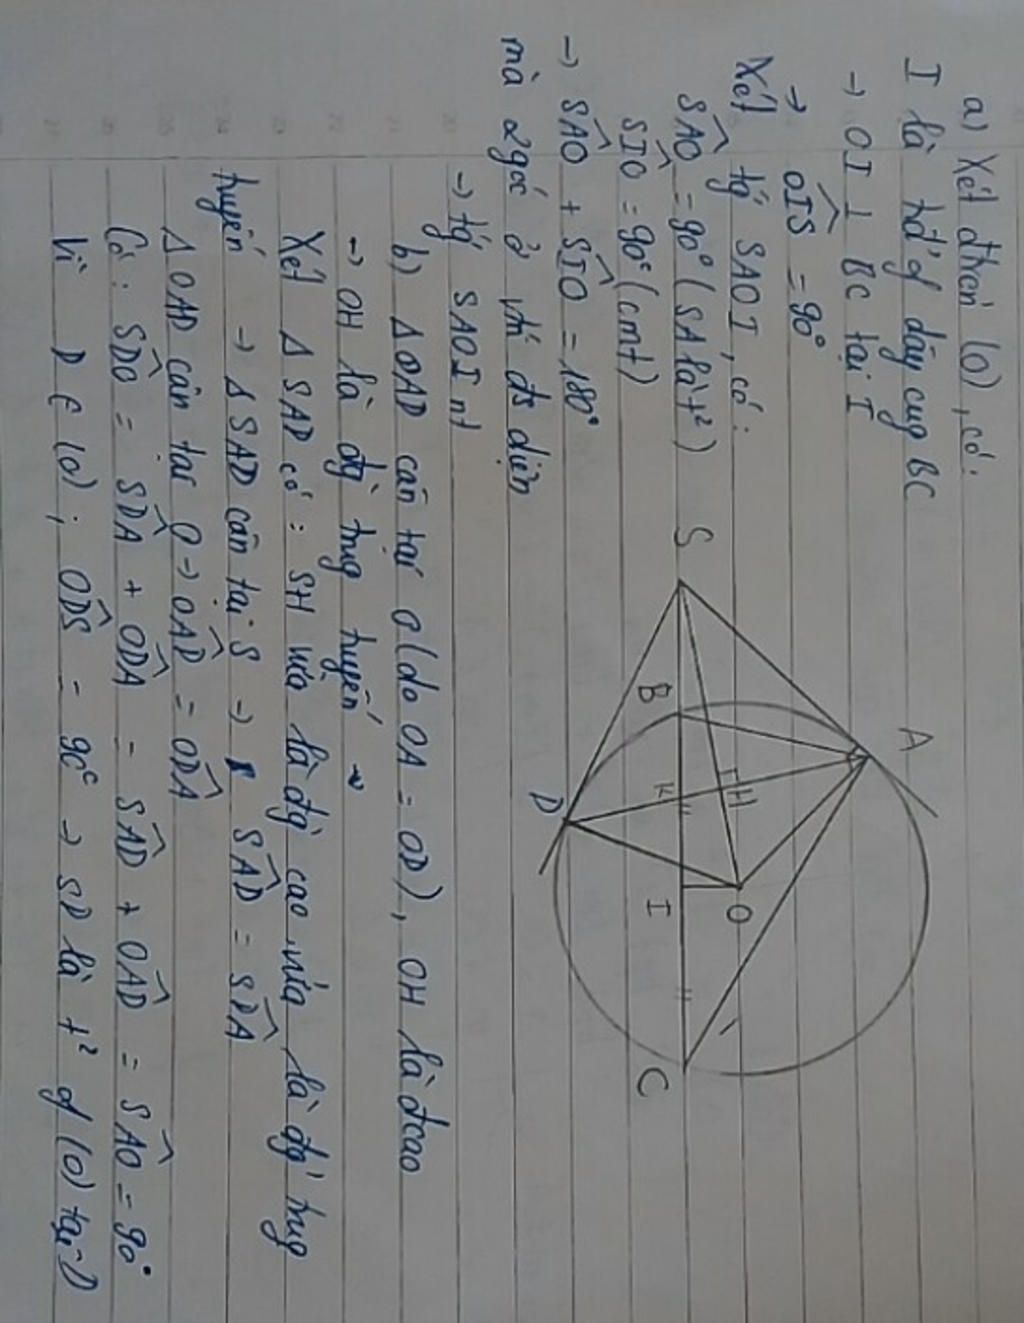 a) Xét đtròn (O), có:
I là tđ' of dây cug BC
→ OI ⊥ BC tại I
→ OIS = 90°
Xét tg SAOI, có:
SAO = 90° (SA là t²)
SIO = 90° (cmt)
→ SAO + SIO = 180°
mà 2 góc ở vtrí đs diện
→ tg SAOI nt
S
A
B
H
K
O
I
D
C
b) Δ OAD cân tại O (do OA = OD), OH là đcao
→ OH là đg trug tuyến
Xét Δ SAD có: SH vừa là đg cao, vừa là đg trug
tuyến → Δ SAD cân tại S → SAD = SDA
Δ OAD cân tại O → OAD = ODA
Có: SDO = SDA + ODA = SAD + OAD = SAO = 90°
Vì D ∈ (O); ODS = 90° → SD là t² of (O) tại D